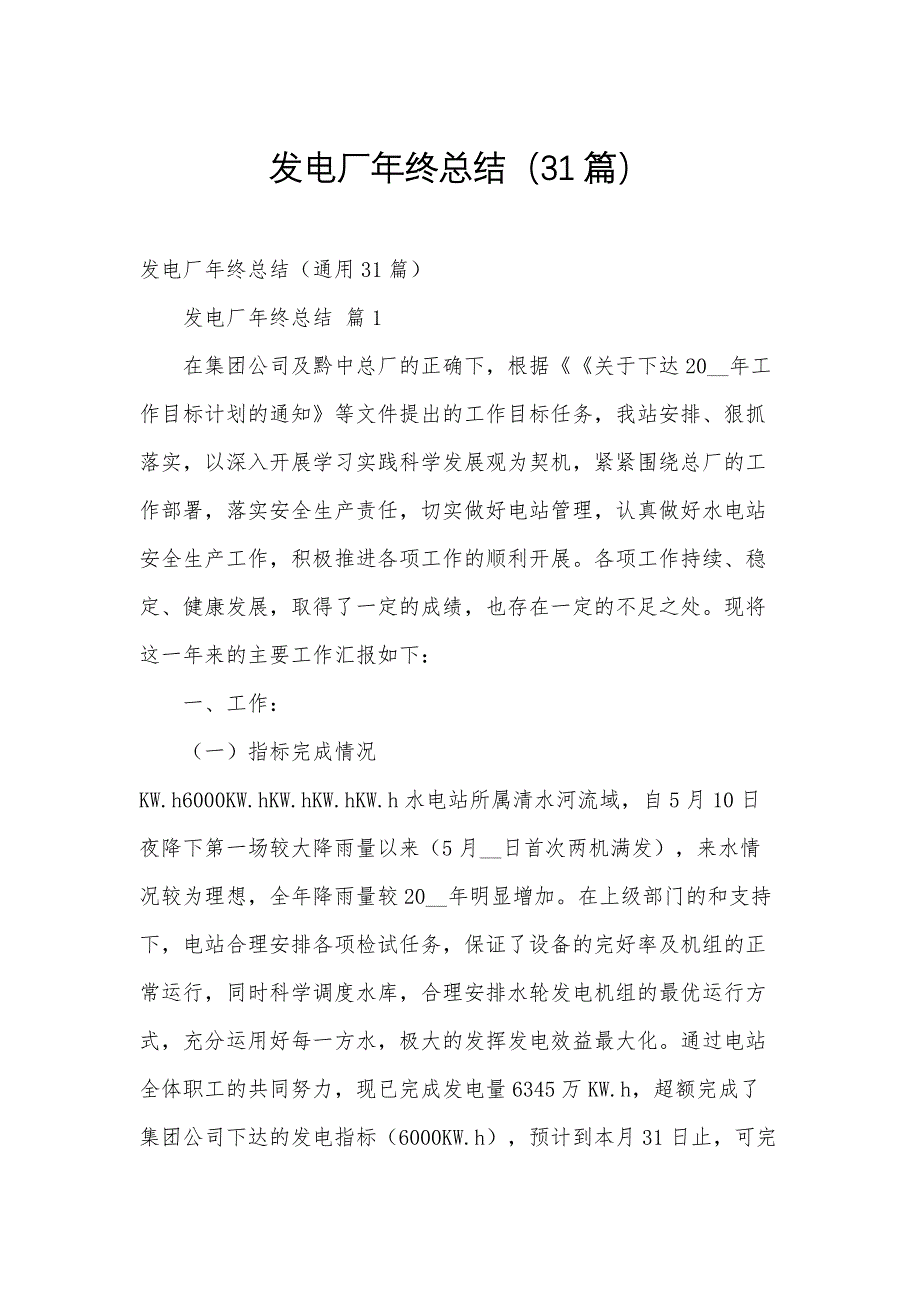 发电厂年终总结（31篇）
发电厂年终总结（通用31篇）
发电厂年终总结 篇1
在集团公司及黔中总厂的正确下，根据《《关于下达20__年工
作目标计划的通知》等文件提出的工作目标任务，我站安排、狠抓
落实，以深入开展学习实践科学发展观为契机，紧紧围绕总厂的工
作部署，落实安全生产责任，切实做好电站管理，认真做好水电站
安全生产工作，积极推进各项工作的顺利开展。各项工作持续、稳
定、健康发展，取得了一定的成绩，也存在一定的不足之处。现将
这一年来的主要工作汇报如下：
一、工作：
（一）指标完成情况
KW.h6000KW.hKW.hKW.hKW.h水电站所属清水河流域，自5月10日
夜降下第一场较大降雨量以来（5月__日首次两机满发），来水情
况较为理想，全年降雨量较20__年明显增加。在上级部门的和支持
下，电站合理安排各项检试任务，保证了设备的完好率及机组的正
常运行，同时科学调度水库，合理安排水轮发电机组的最优运行方
式，充分运用好每一方水，极大的发挥发电效益最大化。通过电站
全体职工的共同努力，现已完成发电量6345万KW.h，超额完成了
集团公司下达的发电指标（6000KW.h），预计到本月31日止，可完